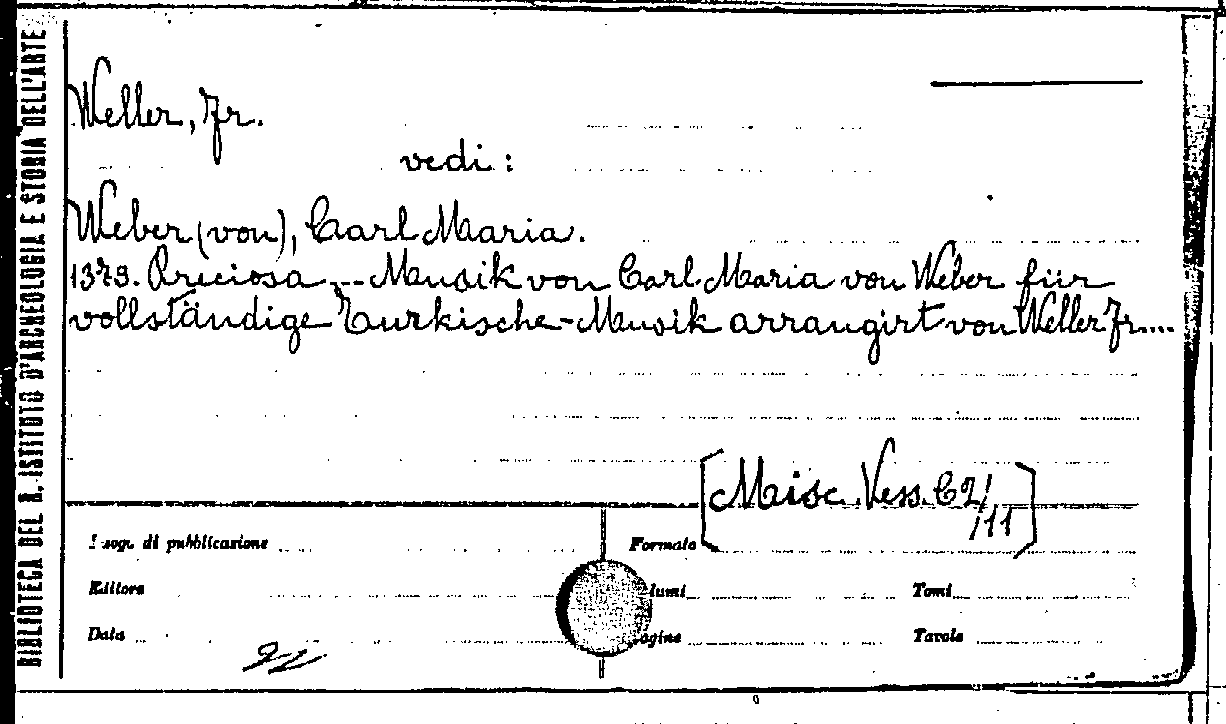 BIBLIOTECA DEL R. ISTITUTO D'ARCHEOLOGIA E STORIA DELL'ARTE
Weller, Fr.
vedi:
Weber (von), Carl Maria.
1379. Preciosa ... Musik von Carl Maria von Weber für
vollständige Turkische-Musik arrangirt von Weller Fr....
[Misc. Vess. C2/11]
di pubblicazione
Formato
Editore
Tomi
Data
Tavole